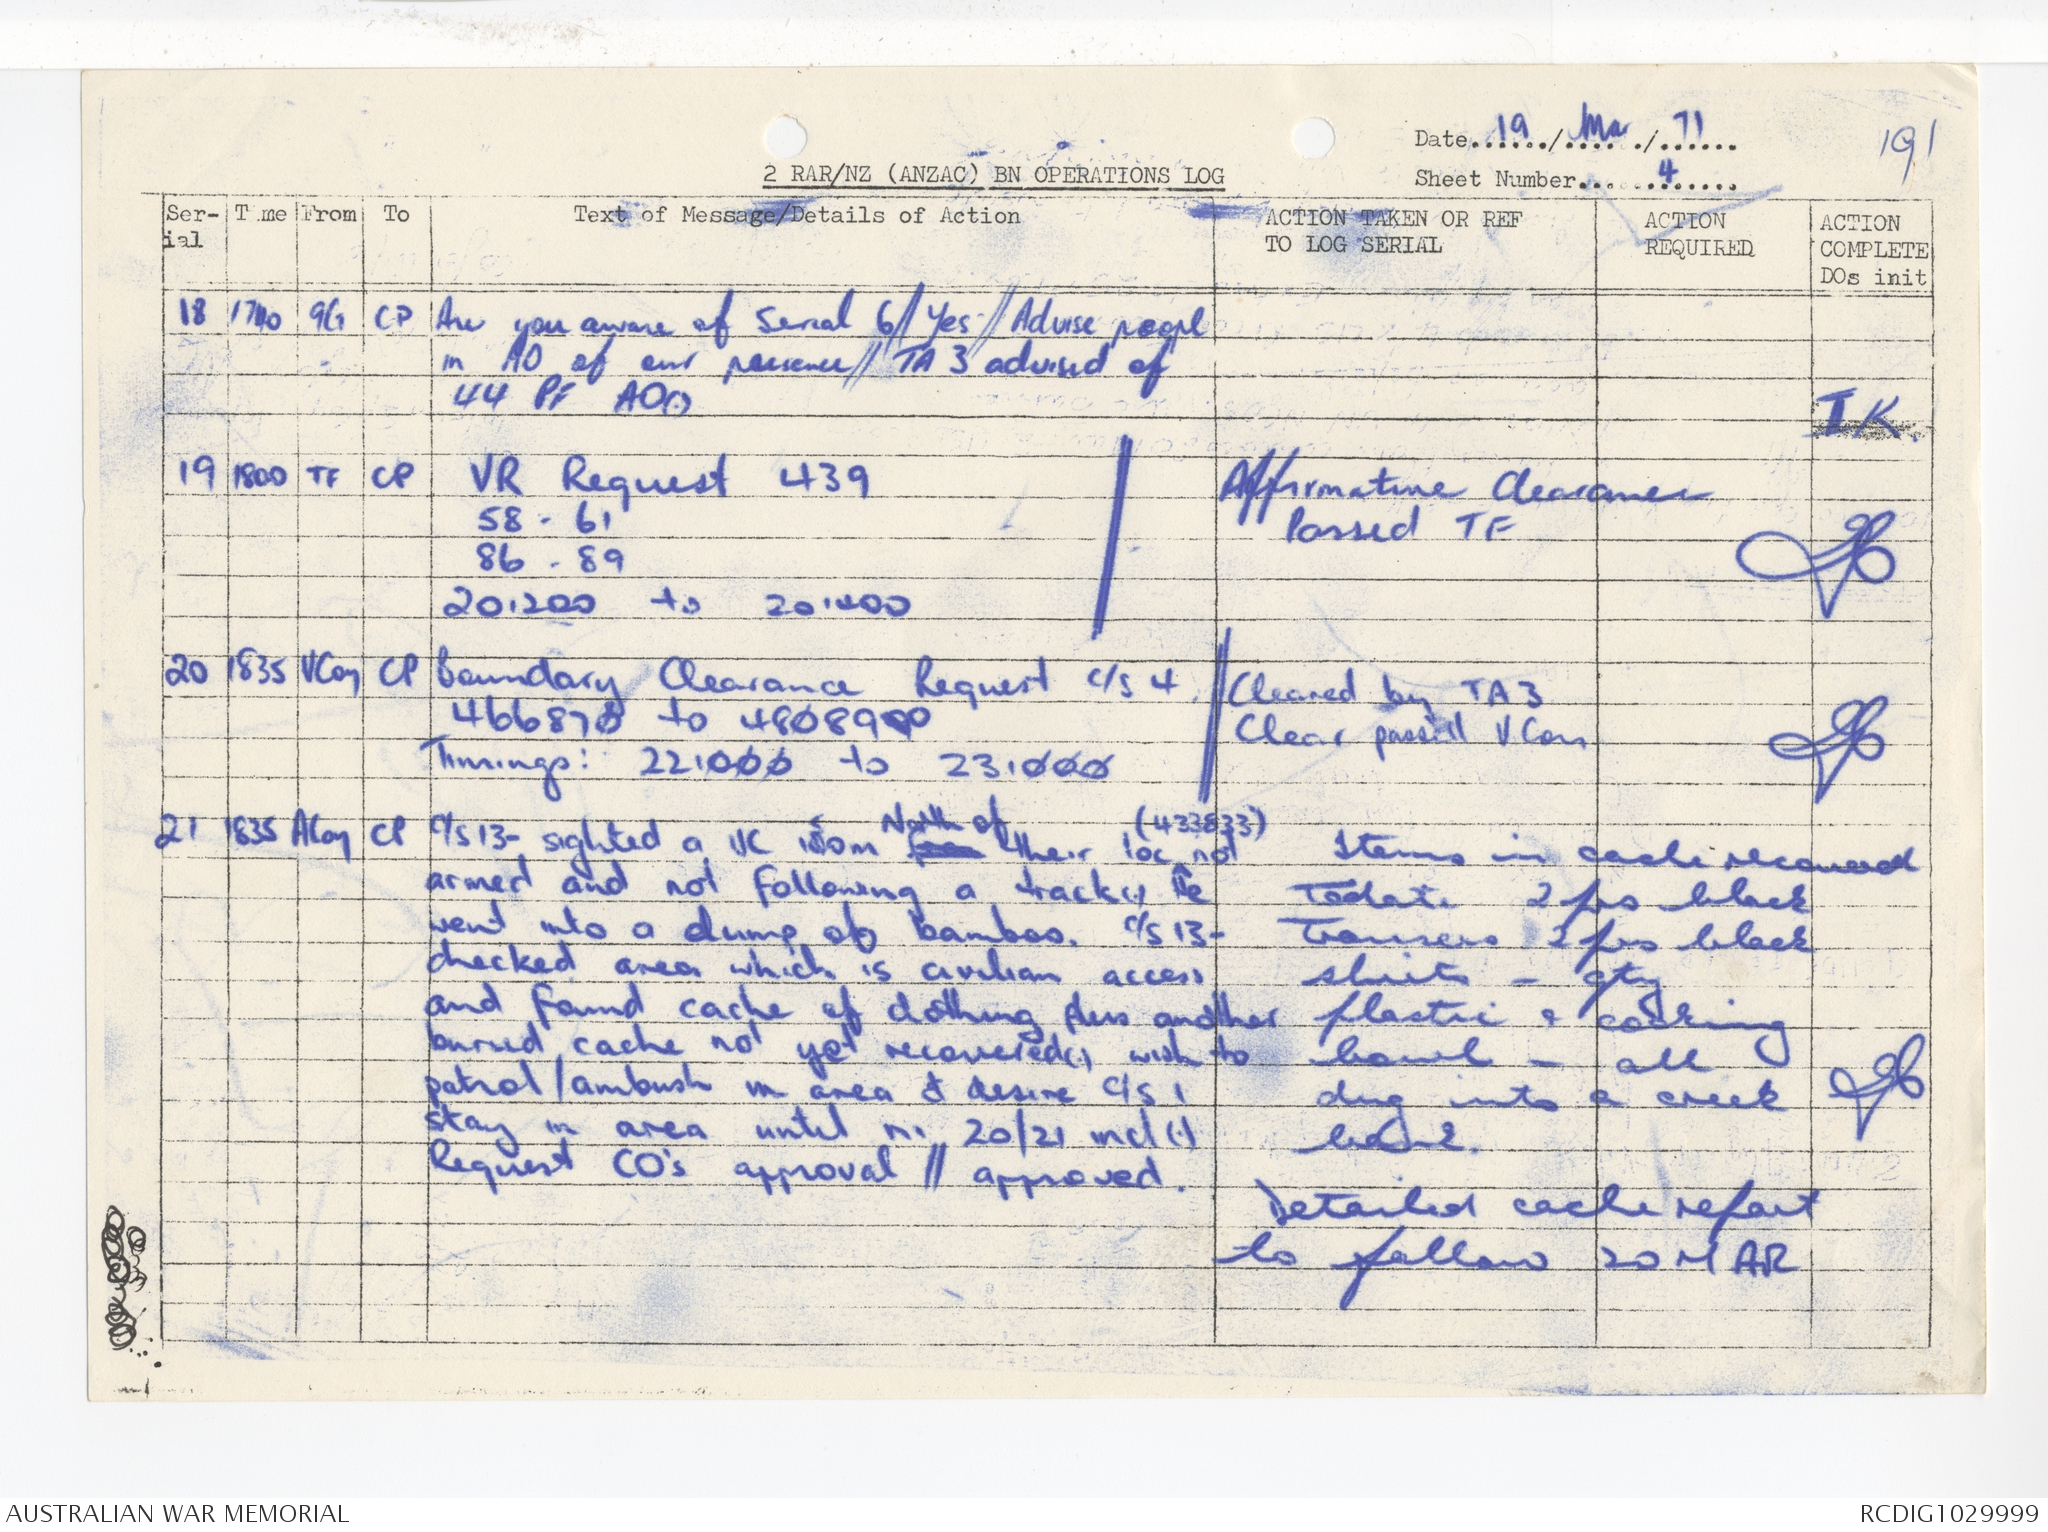 Date 19 / Mar / 71
191
2 RAR/NZ (ANZAC) BN OPERATIONS LOG
Sheet Number 4
Ser-
ial
Time
From
To
Text of Message/Details of Action
ACTION TAKEN OR REF
TO LOG SERIAL
ACTION
REQUIRED
ACTION
COMPLETE
DOs init
18 1740 9G CP Are you aware of Serial 6// Yes // Advise people
in AO of our presence// TA 3 advised of
44 PF AO(.)
I K.
19 1800 TF CP VR Request 439
58 - 61
86 - 89
201200 to 201400
Affirmative Clearance
Passed TF
20 1835 VCoy CP Boundary Clearance Request C/S 4
466870 to 480890
Timings: 221000 to 231000
Cleared by TA 3
Clear passed V Coy
21 1835 ACoy CP C/S 13- sighted a VC 150m North of their loc (433833) not
armed and not following a track(.) He
went into a clump of bamboo. C/S 13-
checked area which is civilian access
and found cache of clothing plus another
buried cache not yet recovered(.) wish to
patrol/ambush in area & desire C/S 1
stay in area until ni 20/21 incl(.)
Request CO's approval // approved.
Items in cache recovered
Todate 2 prs black
Trousers 2 prs black
shirts - qty
plastic & cooking
bowl - all
dug into a creek
bank.
Detailed cache report
to follow 20 MAR
AUSTRALIAN WAR MEMORIAL
RCDIG1029999